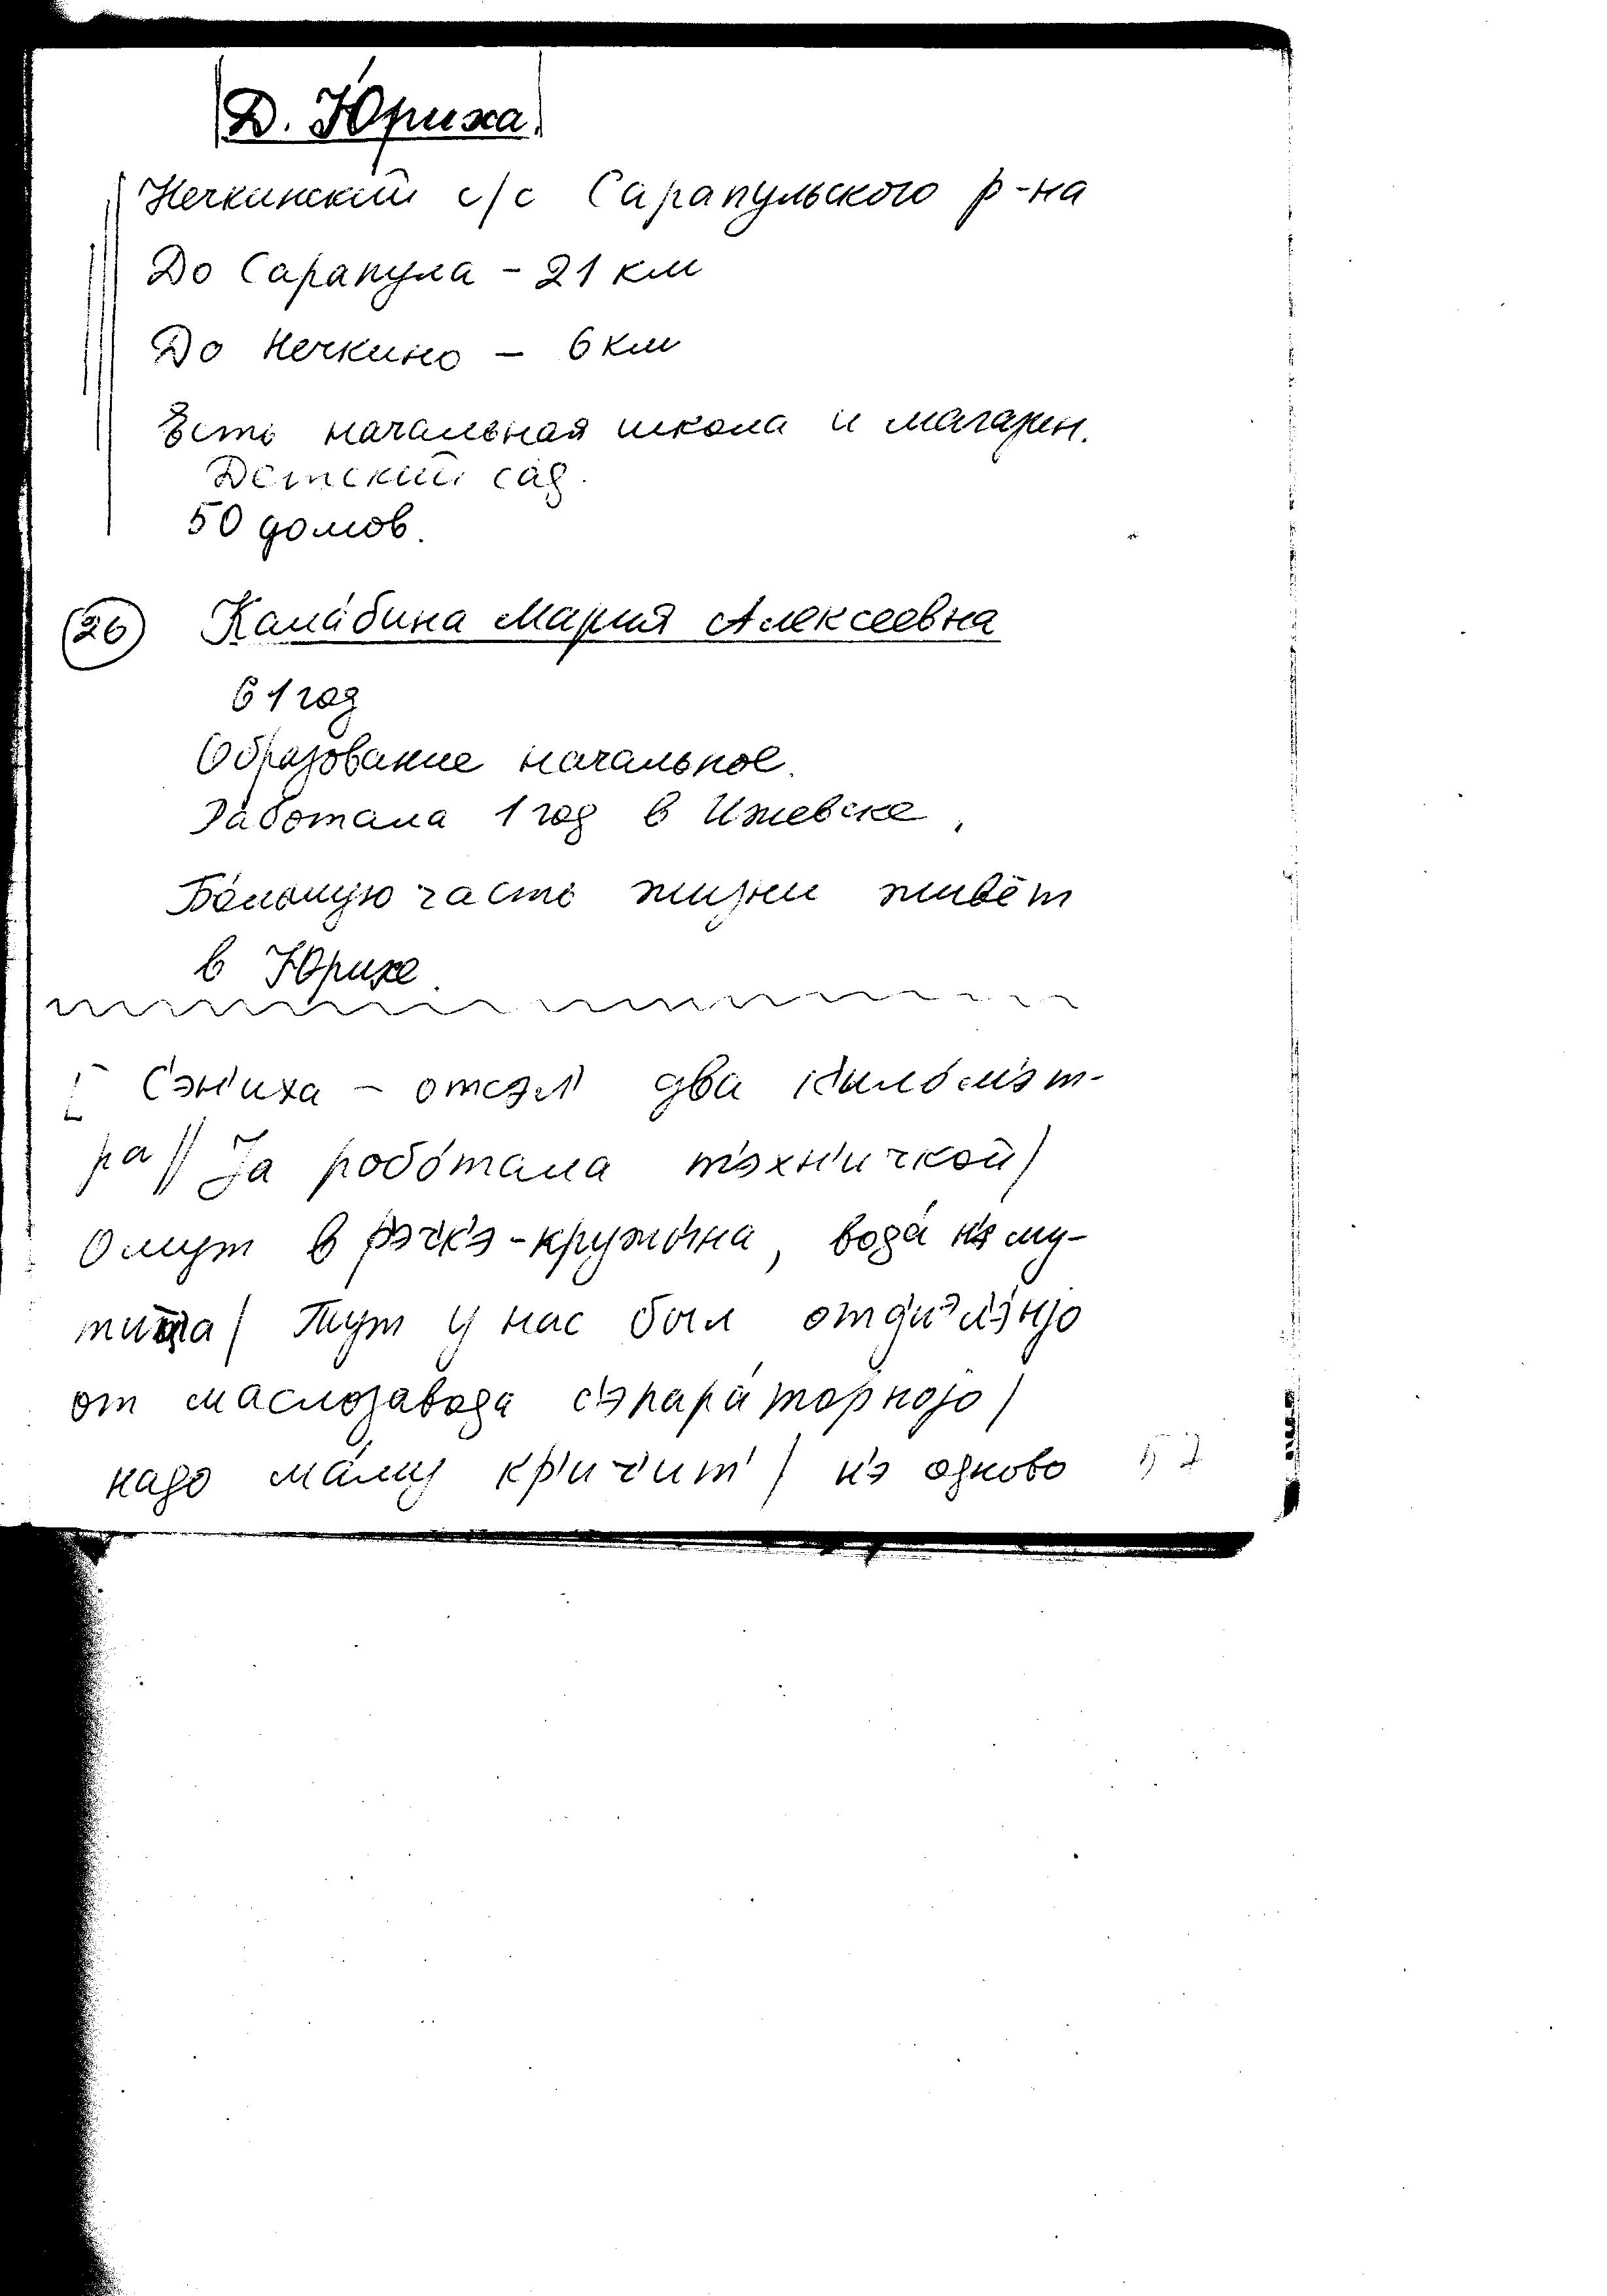 Д. Ю́риха.
Нечкинский с/с Сарапульского р-на
До Сарапула – 21 км
До Нечкино – 6 км
Есть начальная школа и магазин.
Детский сад.
50 домов.
26 Кала́бина Мария Алексеевна
61 год
Образование начальное.
Работала 1 год в Ижевске.
Бо́льшую часть жизни живёт
в Юрихе.
[ С'э́н'иха – отсэл' два к'ило́м'эт-
ра // Jа робо́тала т'эхн'ичкой /
Омут в р'эчк'э - кружы́на, вода́ н'э му-
тица / Тут у нас был отд'иэл'э́нjо
от маслозавода с'эпара́торноjо /
надо ма́му кр'ич'ит' / н'э одново
57